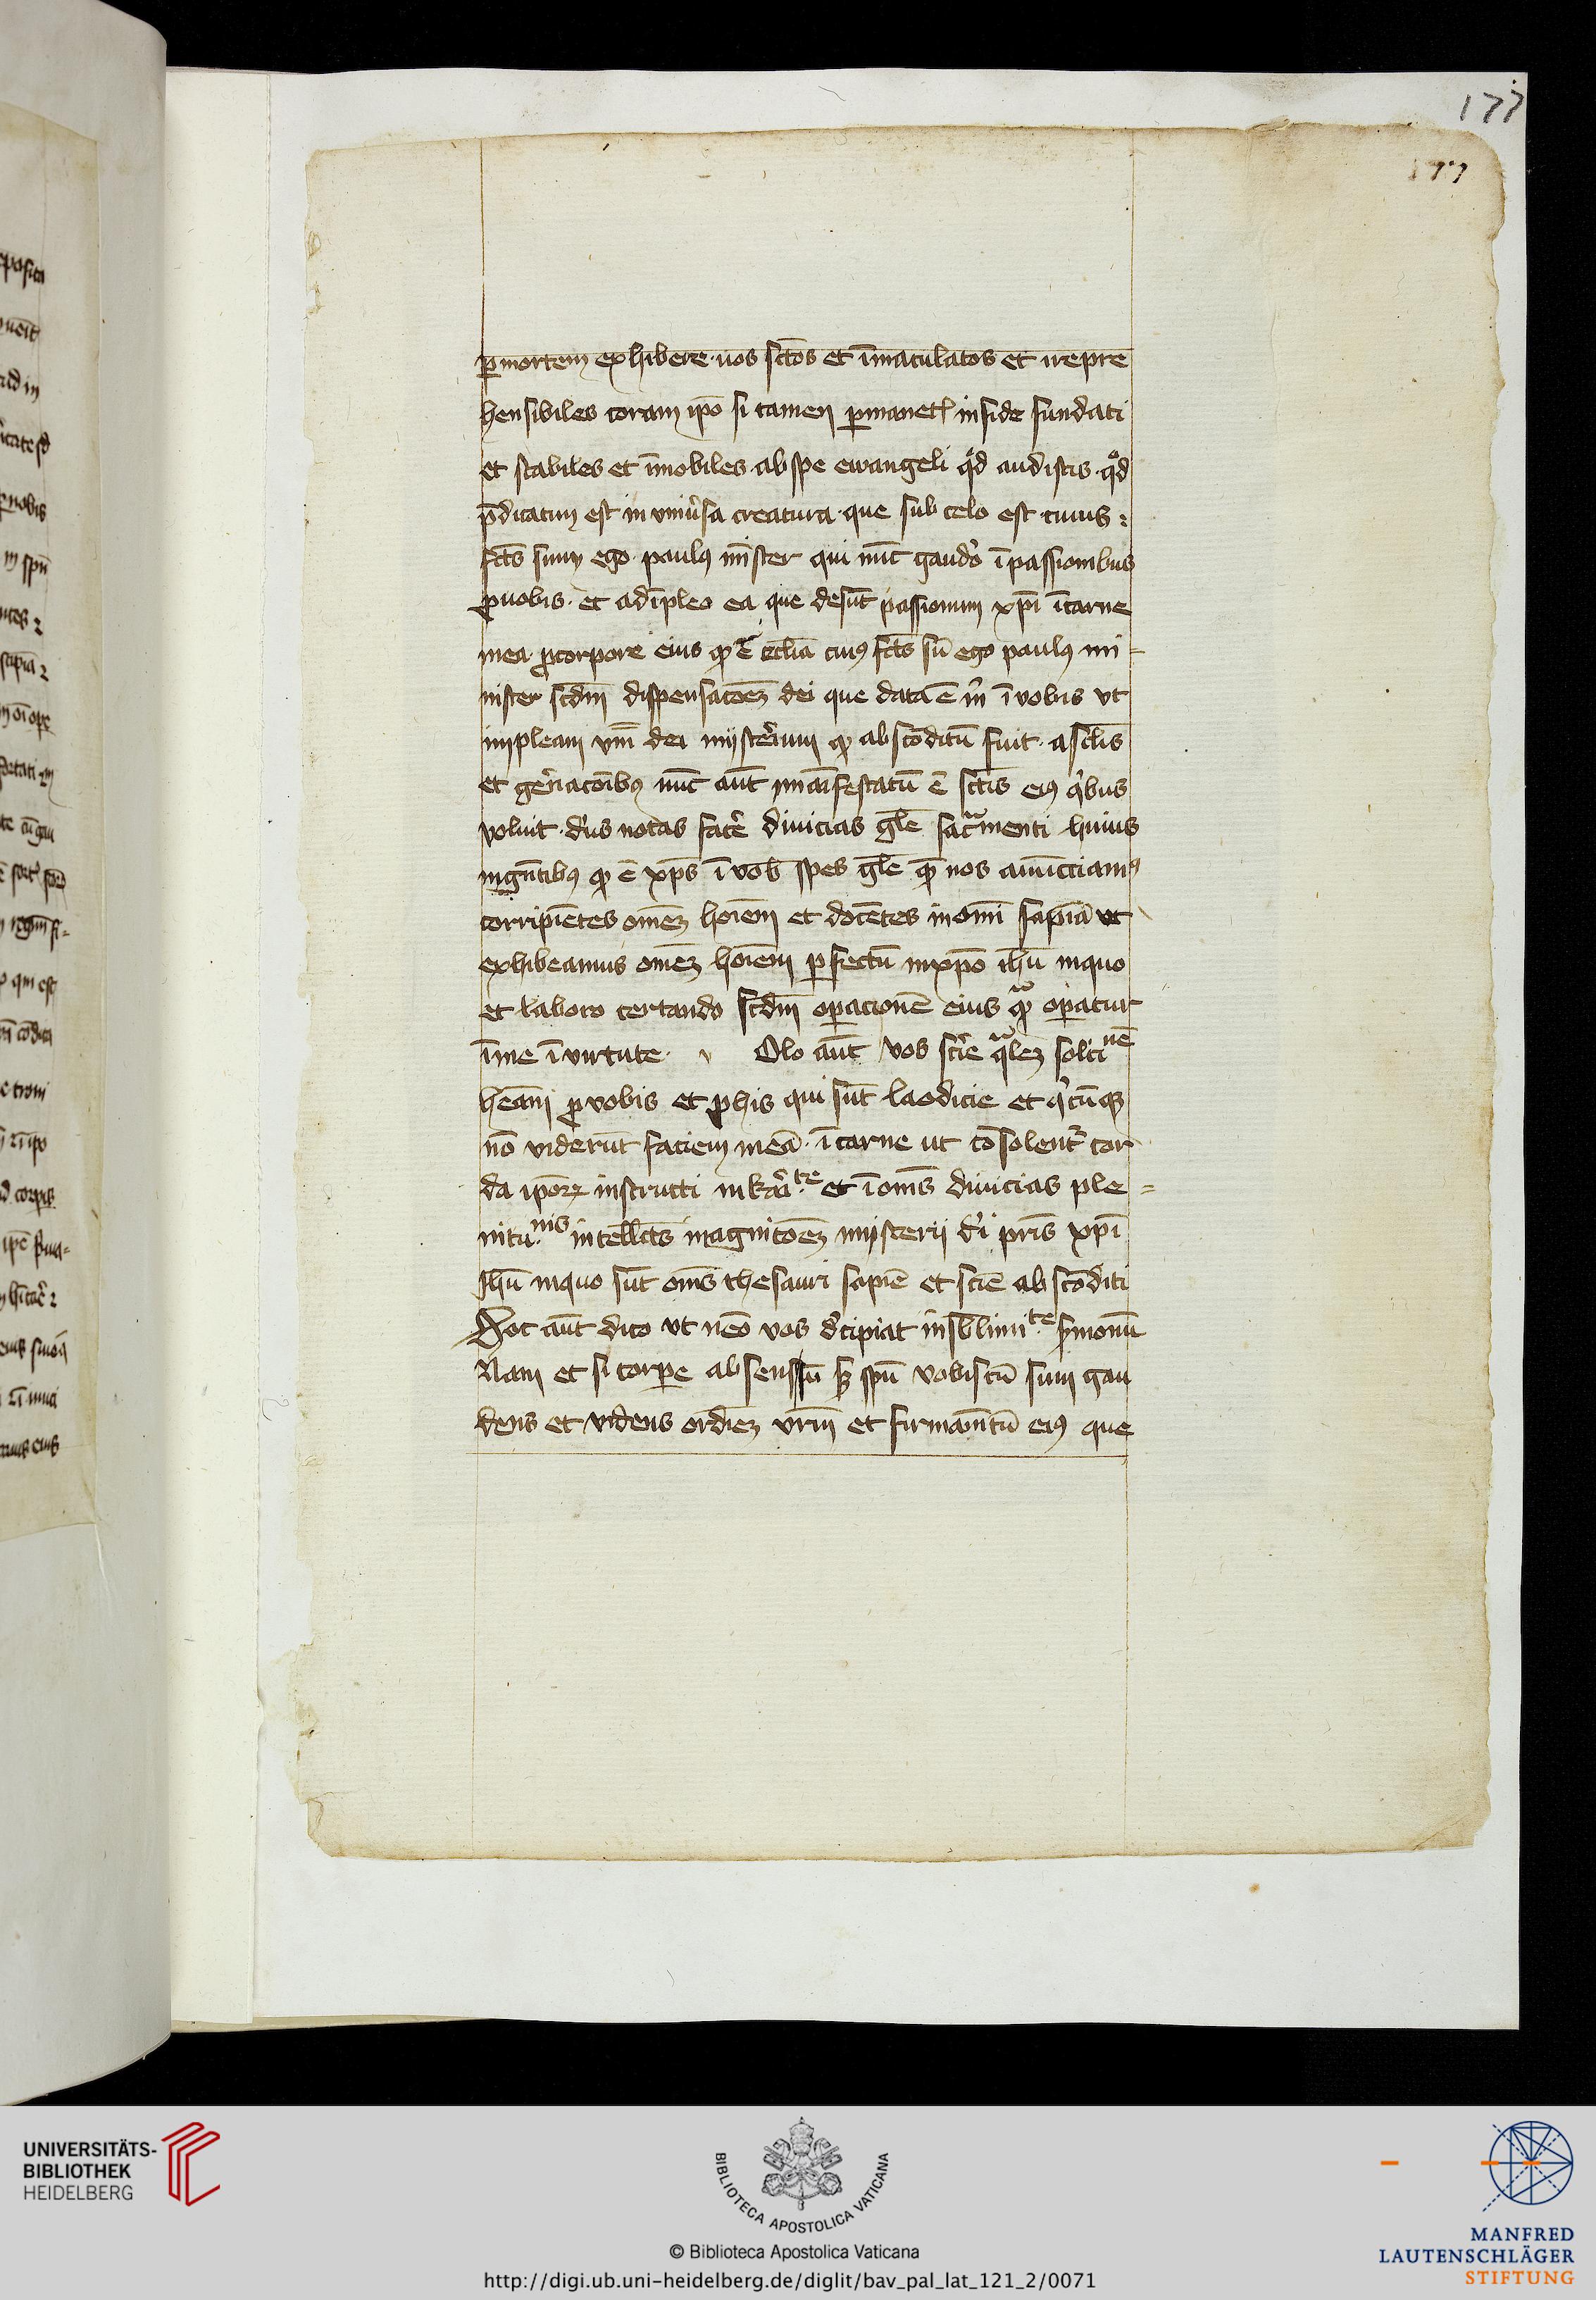 177
177
ꝑmortem exhibere·uos sctōs et īmaculatos et irepre
hensibiles coram ip̄o si tamen ꝑmanetꝭ infide fundati
et stabiles et īmobiles ab spe ewangeli qͦd audistis qͦd
p̄dicatum est in vniu̾sa creatura que sub celo est cuius
fc̄tꝰ sum ego paulꝰ mīster qui nūc gaudeo ī passionibus
ꝓ uobis et adīpleo ea que desūt passionum xp̄i ī carne
mea ꝓ corpore eius ꝙ ē ecclīa cuiꝰ fc̄tꝰ sū ego paulꝰ mi-
nister scd̄m dispensacōeꝫ dei que data ē m̄ ī vobis vt
impleam vm̄ dei mysteriū ꝙ absconditū fuit a sclīs
et gen̾acōibꝰ nūc aūt manifestatū ē sctīs eiꝰ qͥbus
voluit dūs notas facē diuicias glē sacͣmenti huius
in gn̄tibꝰ ꝙ ē xp̄s ī vob̄ spes glē qm̄ nos annūcciamꝰ
corripiētes omēꝫ hoīem et docētes in omī sapīa vt
exhibeamus omēꝫ hoīem ꝑfectū in xp̄o ih̄u in quo
et laboro certando scd̄m oꝑacionē eius qͣ oꝑatur
ī me ī virtute Olo aūt vos scīe qͣleꝫ solcinē
heām ꝓ vobis et ꝓ his qui sūt laodicie et qͥcūqꝫ
nō viderūt faciem meā ī carne ut cōsolentͬ cor
da ipōꝝ instructi in kari.te et ī oms diuicias ple-
nitu.nis intellc̄tꝰ in agnitōeꝫ mysterij d̓i pr̄is xp̄i
Ihū in quo sūt oms thesauri sapiē et sciē absconditi
Hoc aūt dico vt nēo vos decipiat in sb̄limi.te ẜmonū
Nam et si corꝑe absens sū sꝫ spū vobiscū sum gau
dens et videns ordieꝫ vrm̄ et firmam̄tū eiꝰ que
UNIVERSITÄTS-
BIBLIOTHEK
HEIDELBERG
BIBLIOTECA APOSTOLICA VATICANA
© Biblioteca Apostolica Vaticana
http://digi.ub.uni-heidelberg.de/diglit/bav_pal_lat_121_2/0071
MANFRED
LAUTENSCHLÄGER
STIFTUNG